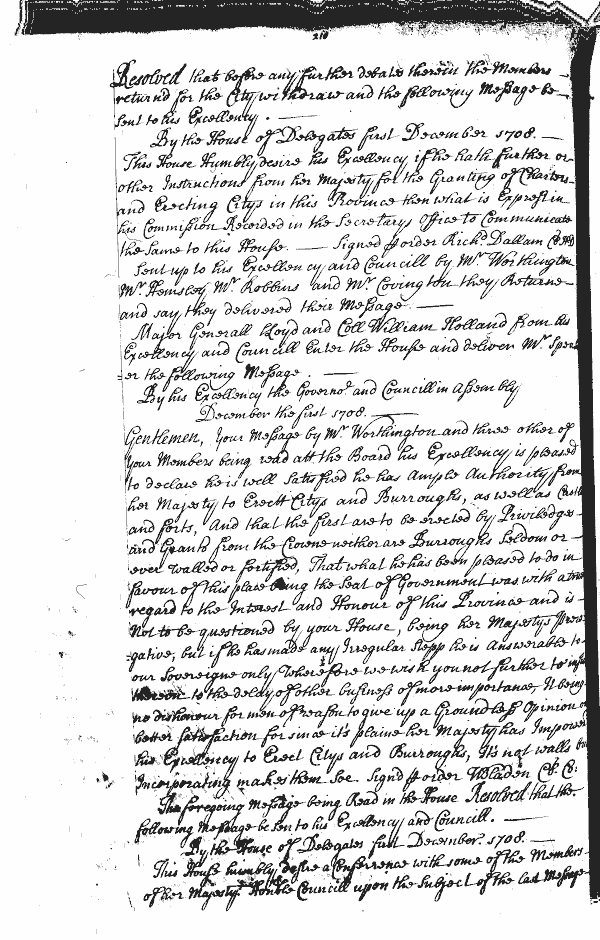 210
Resolved that before any further debates therein the Members
returnd for the City withdraw and the following Message be
sent to his Excellency. —
By the House of Delegates first December 1708. —
This House Humbly desire his Excellency if he hath further or
other Instructions from her Majesty for the Granting of Charters
and Erecting Citys in this Province then what is Exprest in
his Commission Recorded in the Secretarys Office to Communicate
the Same to this House. — Signed p order Richd Dallam
Sent up to his Excellency and Councill by Mr Worthington
Mr Hemsley Mr Robbins and Mr Covington they Returne
and say they delivered their Message. —
Major Generall Lloyd and Coll William Holland from his
Excellency and Councill Enter the House and deliver Mr Speak
=er the following Message. —
By his Excellency the Governor and Councill in Assembly
December the first 1708. —
Gentlemen, Your Message by Mr Worthington and three other of
your Members being read att the Board his Excellency is pleased
to declare he is well Satisfied he has Ample Authority from
her Majesty to Erect Citys and Burroughs, as well as
and Forts, And that the first are to be erected by Priviledges
and Grants from the Crowne neither are Burroughs Seldom or —
ever walled or fortified, That what he has been pleased to do in
favour of this place being the Seat of Government was with a true
regard to the Interest and Honour of this Province and is —
Not to be questioned by your House, being her Majestys Prero
gative, but if he has made any Irregular Stepp he is Answerable to
our Sovereigne only, Wherefore we wish you not further to
therein to the delay of other business of more importance, It being
no dishonour for men of reason to give up a Groundless Opinion
better Satisfaction for since it's plaine her Majesty has Impower
his Excellency to Erect Citys and Burroughs, It's not walls but
Incorporating makes them Soe. Signd p order WBladen Cl. C:
The foregoing Message being Read in the House Resolved that the
following Message be sent to his Excellency and Councill. —
By the House of Delegates first December. 1708. —
This House humbly desire a Conferrence with some of the Members
of her Majestys Honble Councill upon the Subject of the last Message